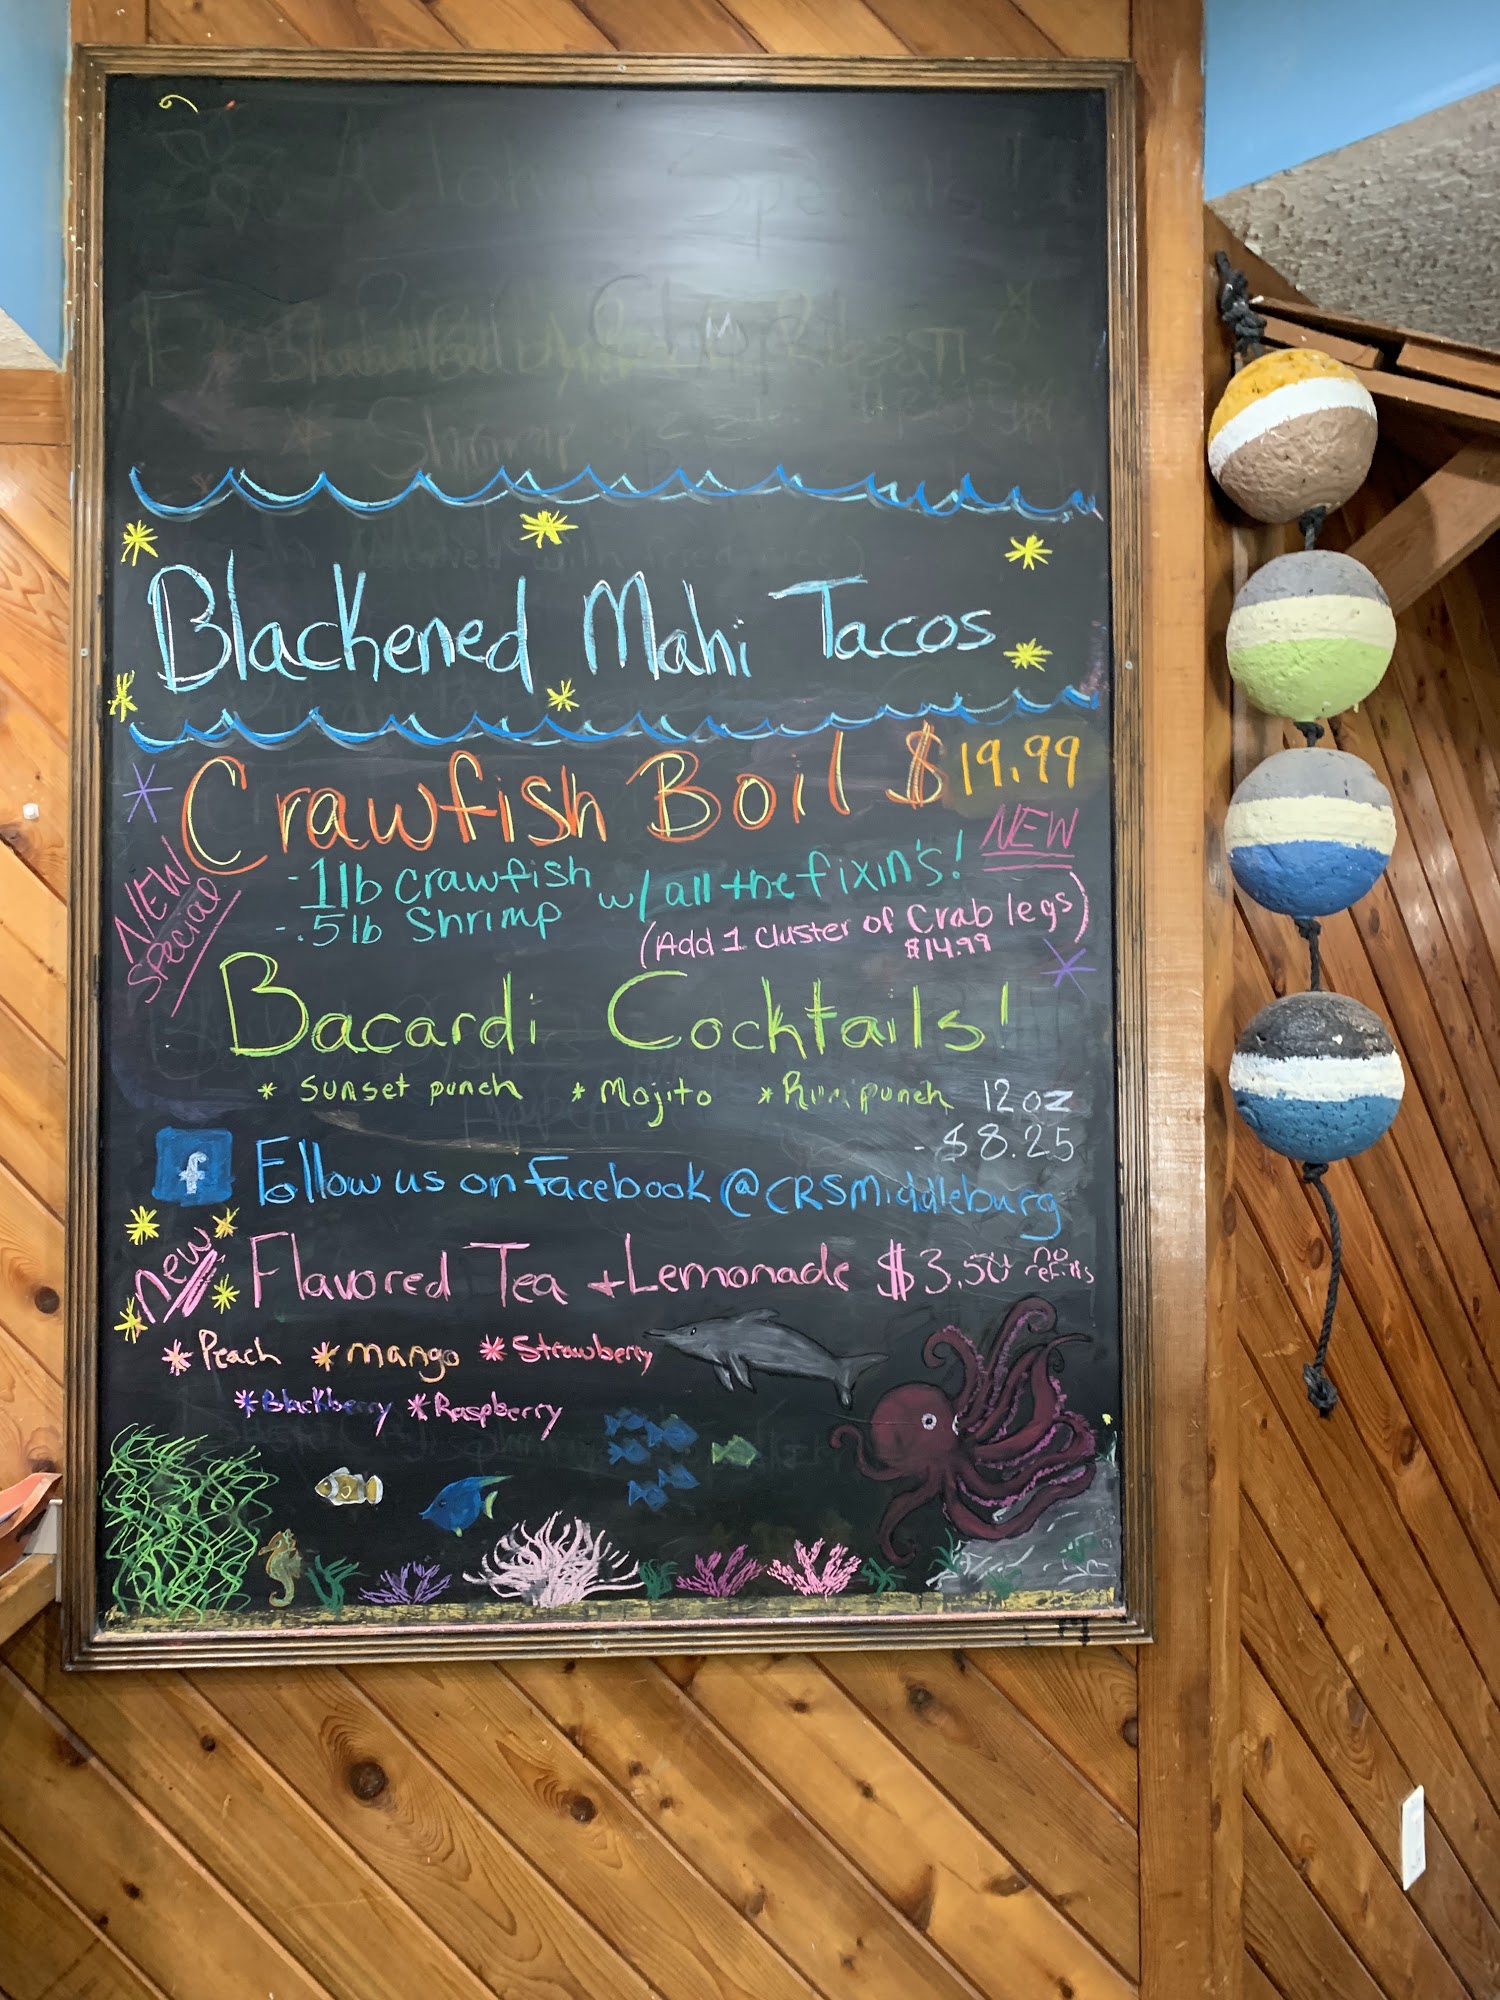 Aloha Specials!
Shrimp
Blackened Mahi Tacos
Crawfish Boil $19.99
NEW
NEW Special
- 1lb crawfish w/ all the fixin's!
- .5lb Shrimp
(Add 1 cluster of Crab legs)
$14.99
Bacardi Cocktails!
* Sunset punch * Mojito * Rum punch 12oz
- $8.25
f Follow us on facebook @CRSMiddleburg
new Flavored Tea + Lemonade $3.50 no refills
* Peach * mango * Strawberry
* Blackberry * Raspberry